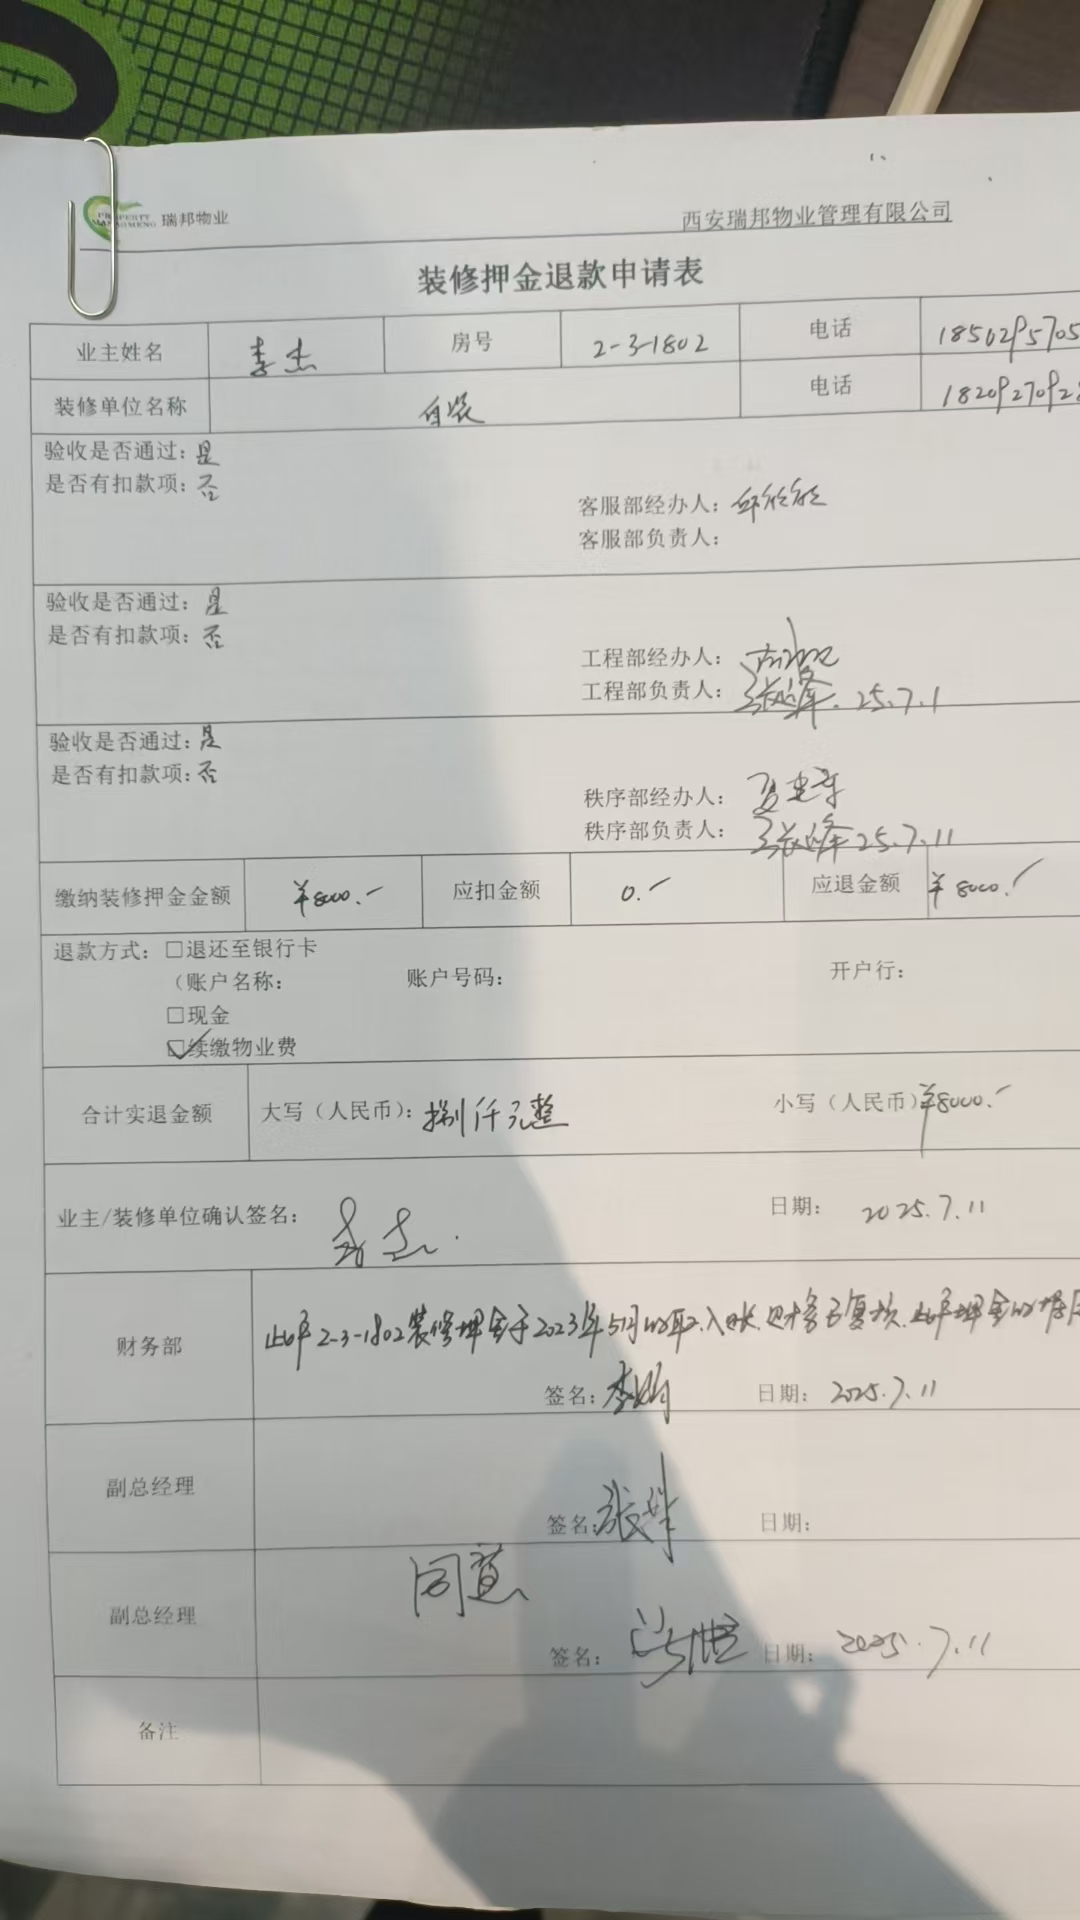 PROPERTY
MANAGMENG 瑞邦物业
西安瑞邦物业管理有限公司
装修押金退款申请表
业主姓名 李杰 房号 2-3-1802 电话 1850295705
装修单位名称 自装 电话 1820927092
验收是否通过: 是
是否有扣款项: 否
客服部经办人:
客服部负责人:
验收是否通过: 是
是否有扣款项: 否
工程部经办人:
工程部负责人: 25.7.1
验收是否通过: 是
是否有扣款项: 否
秩序部经办人:
秩序部负责人: 25.7.11
缴纳装修押金金额 ¥8000.- 应扣金额 0.- 应退金额 ¥8000.-
退款方式: □退还至银行卡
（账户名称: 账户号码: 开户行:
□现金
☑续缴物业费
合计实退金额 大写（人民币）: 捌仟元整 小写（人民币）¥8000.-
业主/装修单位确认签名: 李杰 日期: 2025.7.11
财务部 此户2-3-1802装修押金于2023年5月收取入账,财务已复核,此户押金收据
签名: 李娟 日期: 2025.7.11
副总经理
签名: 日期:
副总经理 同意
签名: 日期: 2025.7.11
备注